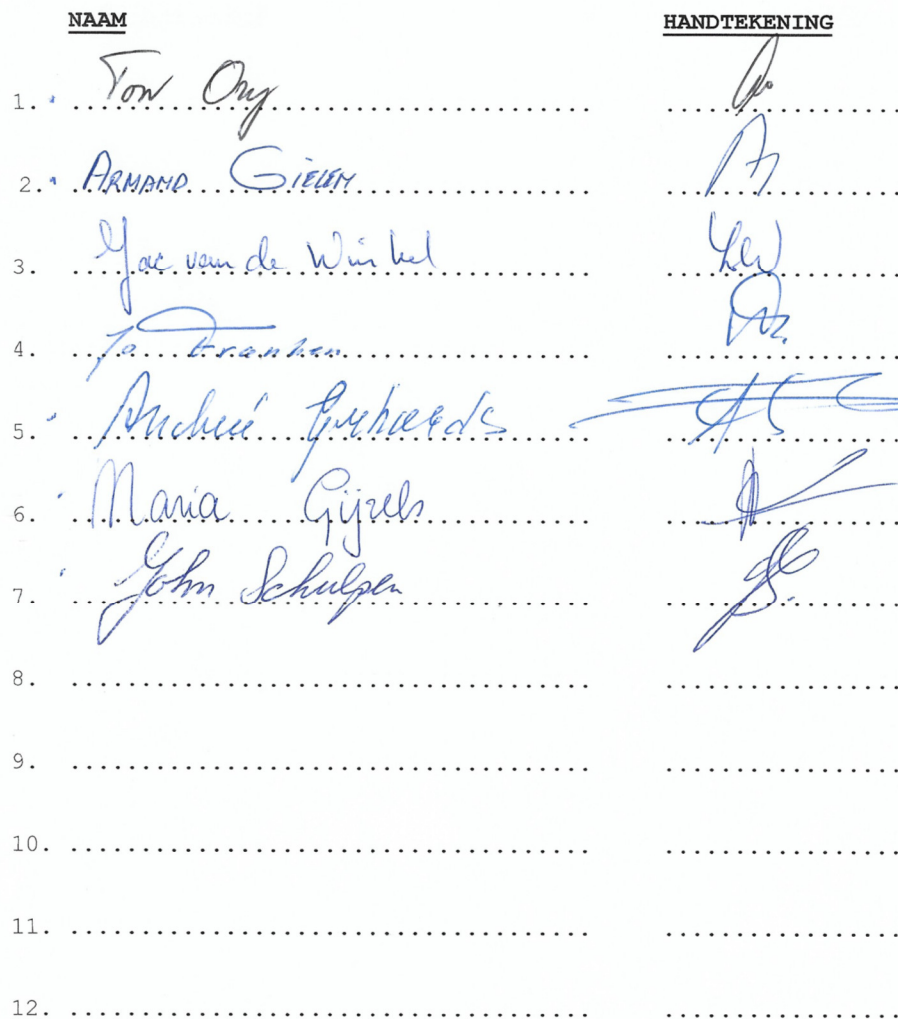 NAAM HANDTEKENING
1. Ton Ony
2. ARMAND GIELEN
3. Jac van de Winkel
4. Jo Franken
5. André
6. Maria Gijzels
7. John Schulpen
8.
9.
10.
11.
12.